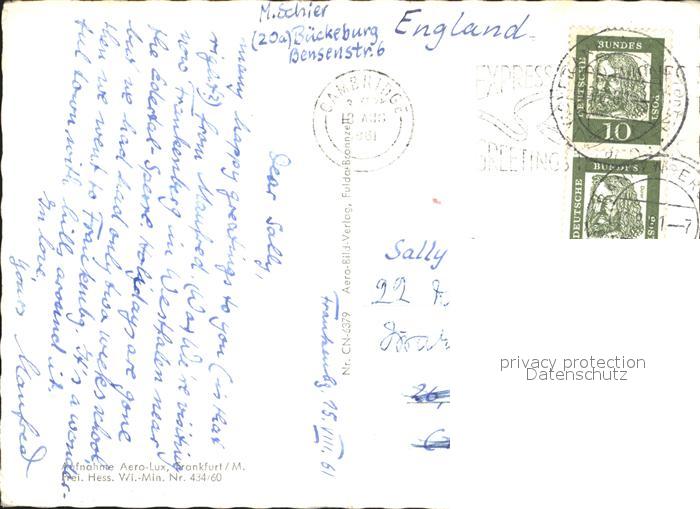 M. Schier
(20a) Bückeburg
Bensenstr. 6
England
Dear Sally,
many happy greetings to you (is that
right?) from Manfred. We're visiting
now Frankenburg in Westfalen near
the Edertal-Sperre. Holidays are gone
but we had had only two weeks school
then we went to Frankenbg. It's a wonder-
ful town with hills around it.
In love,
yours Manfred
Frankenbg, 15. VIII. 61
Nr. CN-6379 Aero-Bild-Verlag, Fulda-Bronnzell
Aufnahme Aero-Lux, Frankfurt/M.
Frei. Hess. Wi.-Min. Nr. 434/60
CAMBRIDGE
AUG
1961
EXPRESS
GREETINGS
DEUTSCHE BUNDESPOST
10
DEUTSCHE BUNDESPOST
Sally
22
26,
privacy protection
Datenschutz